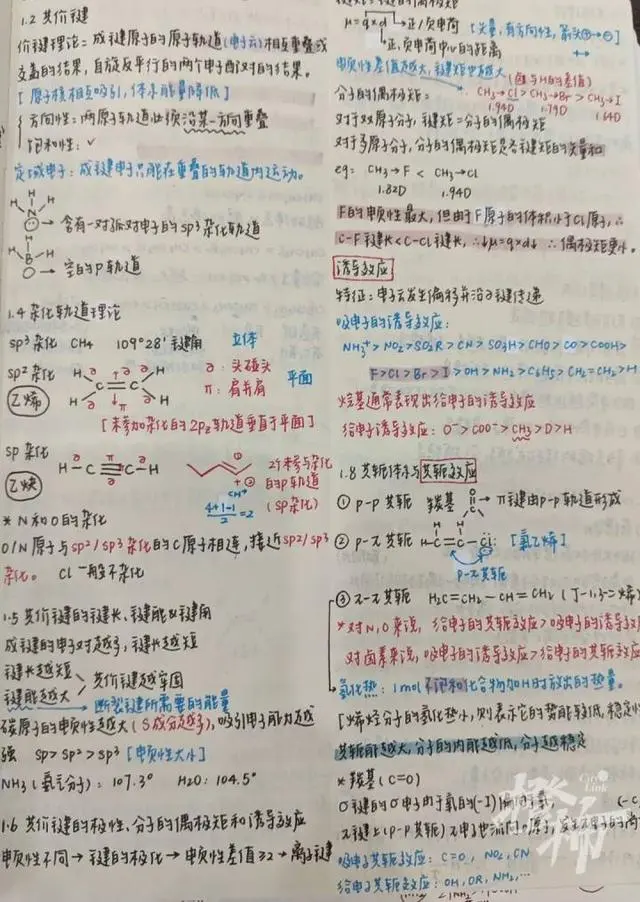 1.2 共价键
价键理论：成键原子的原子轨道(电子云)相互重叠或
交盖的结果，自旋反平行的两个电子配对的结果。
[原子核相互吸引，体系能量降低]
方向性：两原子轨道必须沿某一方向重叠
饱和性：✓
定域电子：成键电子只能在重叠的轨道内运动。
H H
N
→ 含有一对孤对电子的sp³杂化轨道
H H
B
→ 空的p轨道
1.4 杂化轨道理论
sp³杂化 CH4 109°28′键角 立体
sp²杂化
乙烯
H H
C=C
H H
σ：头碰头
π：肩并肩
平面
[未参加杂化的2Pz轨道垂直于平面]
sp 杂化
乙炔
H-C≡C-H
2个未参与杂化
的p轨道
(sp杂化)
4+1-1/2=2
* N和O的杂化
O/N原子与sp²/sp³杂化的C原子相连，接近sp²/sp³
杂化。 Cl一般不杂化
1.5 共价键的键长、键能及键角
成键的电子对越多，键长越短
键长越短
键能越大
共价键越牢固
→ 断裂键所需要的能量
碳原子的电负性越大(S成分越多)，吸引电子能力越
强 sp>sp²>sp³ [电负性大小]
NH3(氨分子)：107.3° H2O：104.5°
1.6 共价键的极性、分子的偶极矩和诱导效应
电负性不同→键的极化→电负性差值≥2→离子键
μ=q×d → 正/负电荷 [矢量，有方向性，箭头⊕→⊖]
→ 正、负电荷中心的距离
电负性差值越大，键矩也越大
(卤与H的差值)
分子的偶极矩： CH3→Cl>CH3→Br>CH3→I
1.94D 1.79D 1.64D
对于双原子分子，键矩=分子的偶极矩
对于多原子分子，分子的偶极矩是各键矩的矢量和
eg： CH3→F < CH3→Cl
1.82D 1.94D
F的电负性最大，但由于F原子的体积小于Cl原子，∴
C-F键长<C-Cl键长，∴↓μ=q×d↓ ∴偶极矩更小。
诱导效应
特征：电子云发生偏移并沿σ键传递
吸电子的诱导效应：
NH3⁺>NO2>SO2R>CN>SO3H>CHO>CO>COOH>
F>Cl>Br>I>OH>NH2>C6H5>CH2=CH2>H
烃基通常表现出给电子的诱导效应
给电子诱导效应：O⁻>COO⁻>CH3>D>H
1.8 共轭体系与共轭效应
① p-p 共轭 羰基 → π键由p-p轨道形成
② p-π 共轭 [氯乙烯]
p-π共轭
③ π-π 共轭 H2C=CH2-CH=CH2 (丁-1,3-二烯)
*对N、O来说，给电子的共轭效应>吸电子的诱导效应
对卤素来说，吸电子的诱导效应>给电子的共轭效应
氢化热：1mol不饱和化合物加H时放出的热量。
[烯烃分子的氢化热小，则表示它的势能较低，稳定性
共轭能越大，分子的内能越低，分子越稳定
*羰基(C=O)
σ键的σ电子由于氧的(-I)偏向于氧，
吸电子共轭效应：C=O, NO2, CN
给电子共轭效应：OH, OR, NH2,…